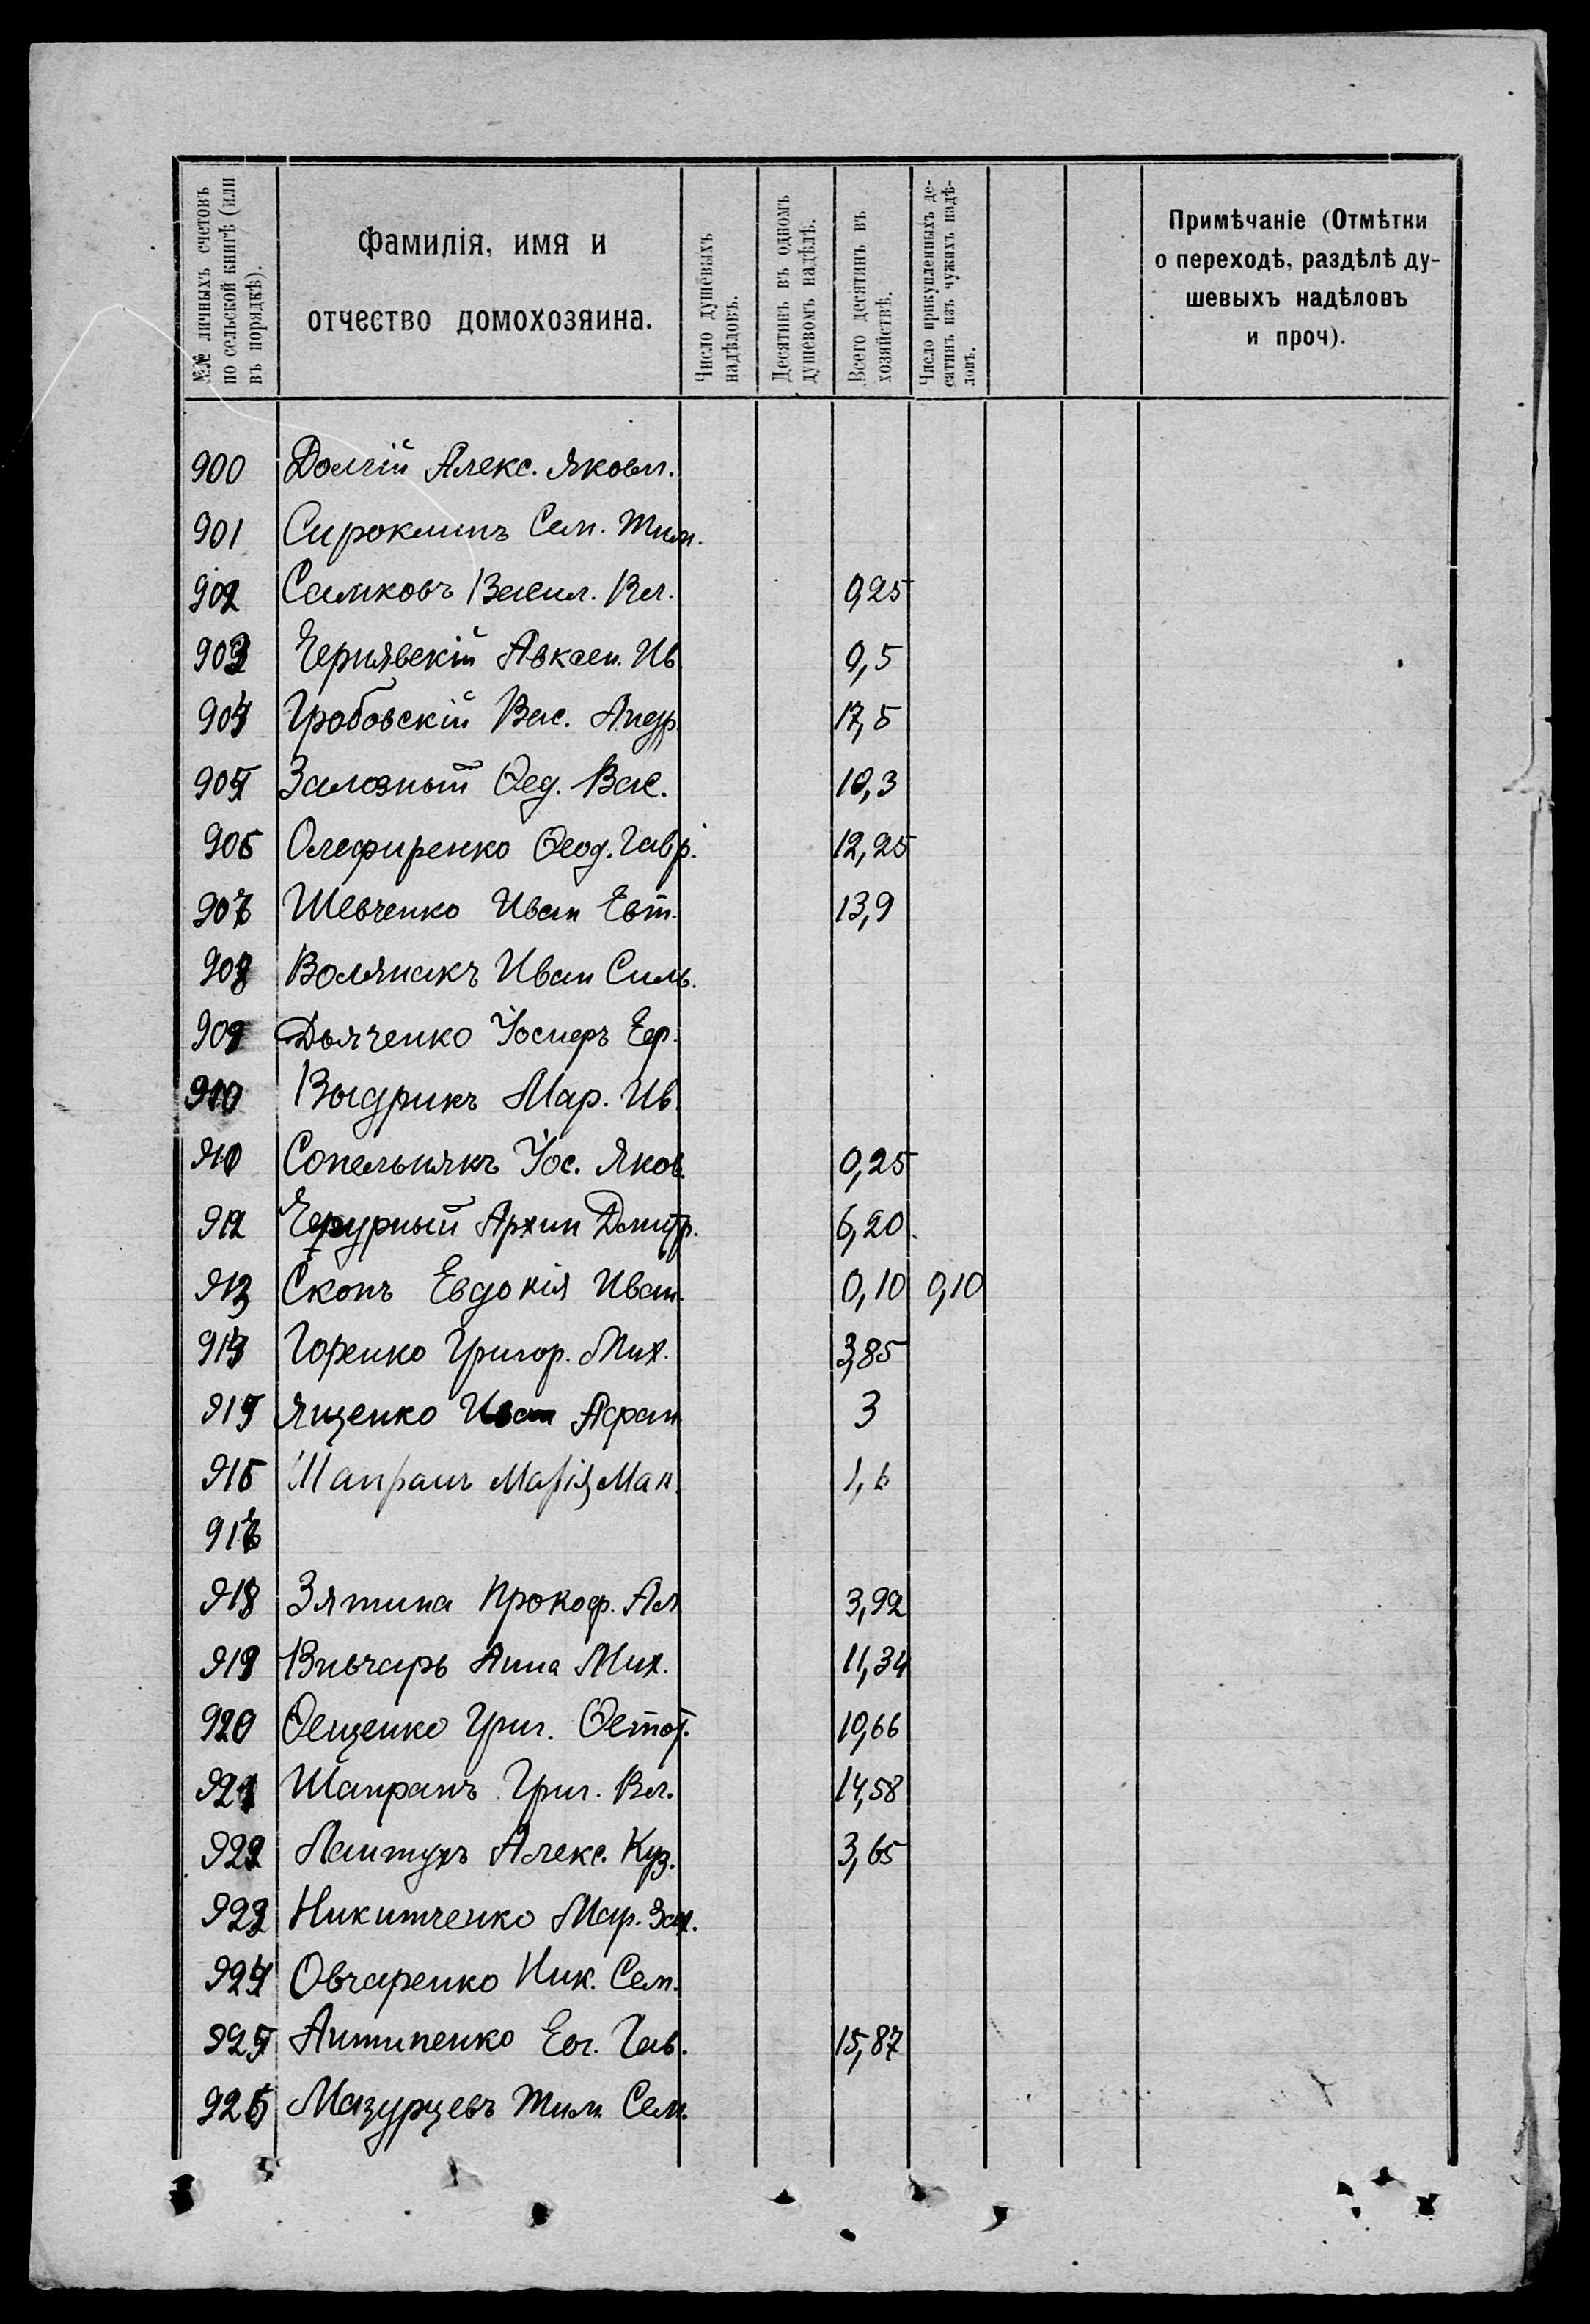 №№ личныхъ счетовъ по сельской книгѣ (или въ порядкѣ).
Фамилія, имя и отчество домохозяина.
Число душевыхъ надѣловъ.
Десятинъ въ одномъ душевомъ надѣлѣ.
Всего десятинъ въ хозяйствѣ.
Число прикупленныхъ десятинъ изъ чужихъ надѣловъ.
Примѣчаніе (Отмѣтки
о переходѣ, раздѣлѣ ду-
шевыхъ надѣловъ
и проч).
900 Долгій Алекс. Яковл.
901 Сироклинъ Сем. Тим.
902 Самковъ Васил. Вл. 0,25
903 Чернявскій Авксен. Ив 0,5
904 Гробовскій Вас. Андр. 17,5
905 Залозный Ѳед. Вас. 10,3
906 Олефиренко Ѳеод. Гавр. 12,25
907 Шевченко Иван Евт. 13,9
908 Волянакъ Иван Силь.
909 Дьяченко Іосифъ Еф.
910 Выдрикъ Мар. Ив.
910 Сопельнякъ Іос. Яков. 0,25
912 Архип Дмитр. 6,20
913 Скопъ Евдокія Иван. 0,10 0,10
914 Горенко Григор. Мих. 3,85
915 Ященко Иван Афан 3
916 Шапранъ Марія Мак. 1,6
917
918 Зятина Прокоф. Ал 3,92
919 Вивчарь Анна Мих. 11,34
920 Ѳещенко Григ. 10,66
921 Шапранъ Григ. Вл. 14,58
922 Пастухъ Алекс. Куз. 3,65
923 Никитченко Мар. Зах.
924 Овчаренко Ник. Сем.
925 Антипенко Ег. Гав. 15,87
926 Мазурцевъ Тим. Сем.